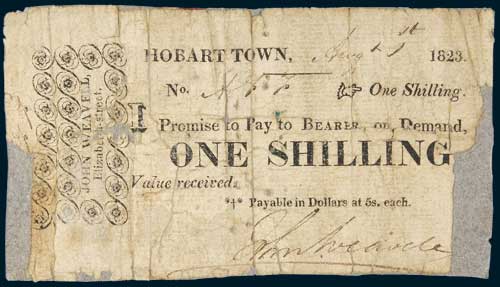 HOBART TOWN, Augt 1st 1823.
No. ☞ One Shilling.
I Promise to Pay to BEARER, on Demand,
ONE SHILLING
Value received.
*‡* Payable in Dollars at 5s. each.
John Weavell
JOHN WEAVELL,
Elizabeth-street.